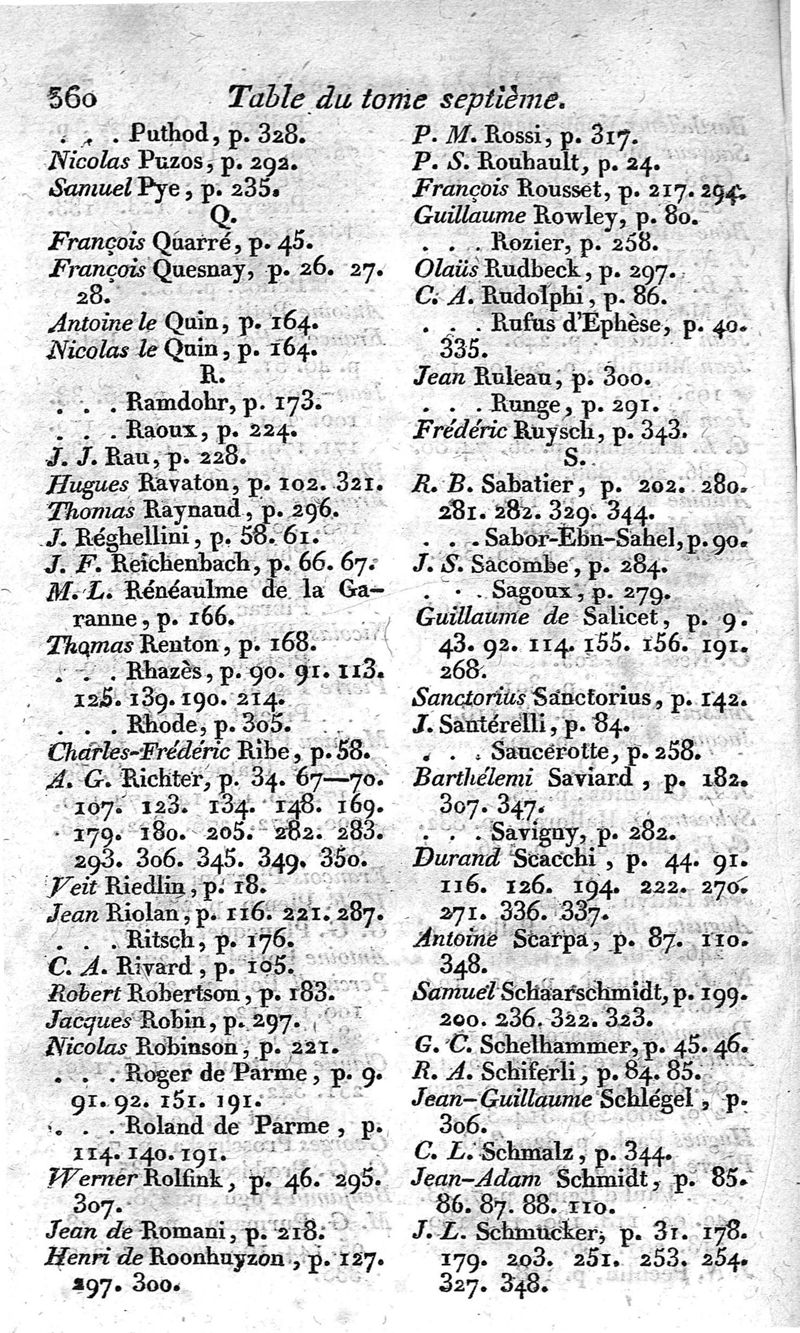 360 Table du tome septième.
. . . Puthod, p. 328.
Nicolas Puzos, p. 292.
Samuel Pye, p. 235.
Q.
François Quarré, p. 45.
François Quesnay, p. 26. 27.
28.
Antoine le Quin, p. 164.
Nicolas le Quin, p. 164.
R.
. . . Ramdohr, p. 173.
. . . Raoux, p. 224.
J. J. Rau, p. 228.
Hugues Ravaton, p. 102. 321.
Thomas Raynaud, p. 296.
J. Réghellini, p. 58. 61.
J. F. Reichenbach, p. 66. 67.
M. L. Rénéaulme de la Ga-
ranne, p. 166.
Thomas Renton, p. 168.
. . . Rhazès, p. 90. 91. 113.
125. 139. 190. 214.
. . . Rhode, p. 305.
Charles-Frédéric Ribe, p. 58.
A. G. Richter, p. 34. 67—70.
107. 123. 134. 148. 169.
179. 180. 205. 282. 283.
293. 306. 345. 349. 350.
Veit Riedlin, p. 18.
Jean Riolan, p. 116. 221. 287.
. . . Ritsch, p. 176.
C. A. Rivard, p. 105.
Robert Robertson, p. 183.
Jacques Robin, p. 297.
Nicolas Robinson, p. 221.
. . . Roger de Parme, p. 9.
91. 92. 151. 191.
. . . Roland de Parme, p.
114. 140. 191.
Werner Rolfink, p. 46. 295.
307.
Jean de Romani, p. 218.
Henri de Roonhuyzon, p. 127.
297. 300.
P. M. Rossi, p. 317.
P. S. Rouhault, p. 24.
François Rousset, p. 217. 294.
Guillaume Rowley, p. 80.
. . . Rozier, p. 258.
Olaüs Rudbeck, p. 297.
C. A. Rudolphi, p. 86.
. . . Rufus d'Ephèse, p. 40.
335.
Jean Ruleau, p. 300.
. . . Runge, p. 291.
Frédéric Ruysch, p. 343.
S.
R. B. Sabatier, p. 202. 280.
281. 282. 329. 344.
. . . Sabor-Ebn-Sahel, p. 90.
J. S. Sacombe, p. 284.
. . . Sagoux, p. 279.
Guillaume de Salicet, p. 9.
43. 92. 114. 155. 156. 191.
268.
Sanctorius Sanctorius, p. 142.
J. Santérelli, p. 84.
. . . Saucerotte, p. 258.
Barthélemi Saviard, p. 182.
307. 347.
. . . Savigny, p. 282.
Durand Scacchi, p. 44. 91.
116. 126. 194. 222. 270.
271. 336. 337.
Antoine Scarpa, p. 87. 110.
348.
Samuel Schaarschmidt, p. 199.
200. 236. 322. 323.
G. C. Schelhammer, p. 45. 46.
R. A. Schiferli, p. 84. 85.
Jean-Guillaume Schlégel, p.
306.
C. L. Schmalz, p. 344.
Jean-Adam Schmidt, p. 85.
86. 87. 88. 110.
J. L. Schmucker, p. 31. 178.
179. 203. 251. 253. 254.
327. 348.